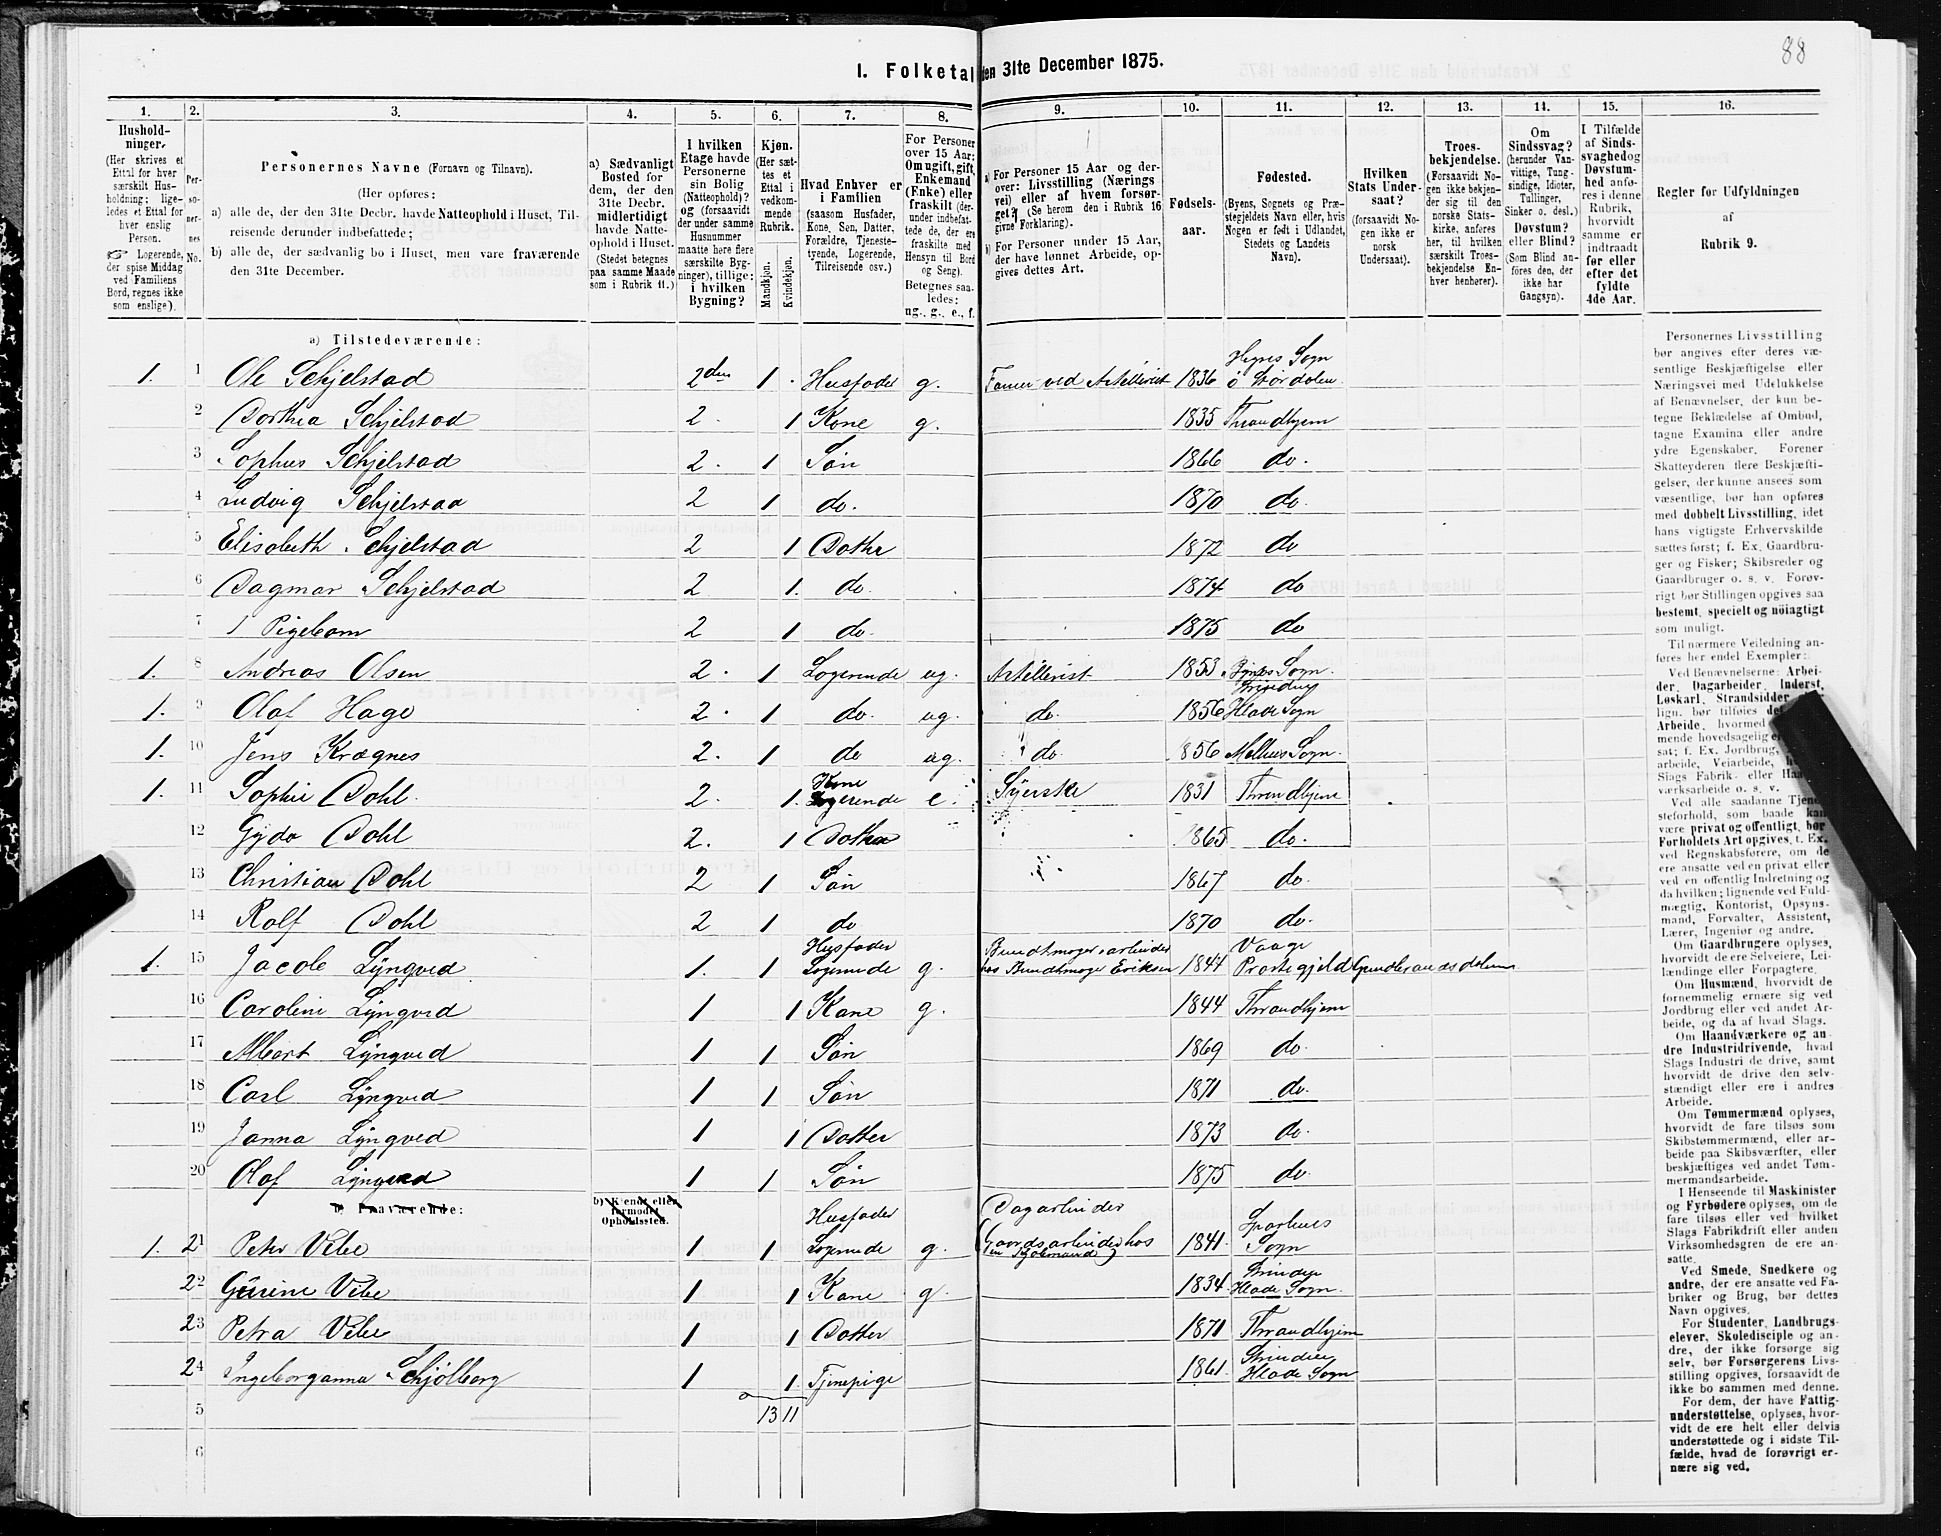 88
I. Folketal den 31te December 1875.
1. 2. 3. 4. 5. 6. 7. 8. 9. 10. 11. 12. 13. 14. 15. 16.
Husholdninger. (Her skrives et Ettal for hver særskilt Husholdning; ligeledes et Ettal for hver enslig Person. ☞ Logerende, der spise Middag ved Familiens Bord, regnes ikke som enslige).
Personernes No.
Personernes Navne (Fornavn og Tilnavn).
(Her opføres:
a) alle de, der den 31te Decbr. havde Natteophold i Huset, Tilreisende derunder indbefattede;
b) alle de, der sædvanlig bo i Huset, men vare fraværende den 31te December.
a) Sædvanligt Bosted for dem, der den 31te Decbr. midlertidigt havde Natteophold i Huset. (Stedet betegnes paa samme Maade som i Rubrik 11.)
I hvilken Etage havde Personerne sin Bolig (Natteophold)? og (forsaavidt der under samme Husnummer maatte høre flere særskilte Bygninger), tillige: i hvilken Bygning?
Kjøn. (Her sættes et Ettal i vedkommende Rubrik.
Mandkjøn. Kvindekjøn.
Hvad Enhver er i Familien (saasom Husfader, Kone, Søn, Datter, Forældre, Tjenestetyende, Logerende, Tilreisende osv.)
For Personer over 15 Aar: Om ugift, gift, Enkemand (Enke) eller fraskilt (derunder indbefattede de, der ere fraskilte med Hensyn til Bord og Seng). Betegnes saaledes: ug., g., e., f.
a) For Personer 15 Aar og derover: Livsstilling (Næringsvei) eller af hvem forsørget? (Se herom den i Rubrik 16 givne Forklaring).
b) For Personer under 15 Aar, der have lønnet Arbeide, opgives dettes Art.
Fødselsaar.
Fødested. (Byens, Sognets og Præstegjeldets Navn eller, hvis Nogen er født i Udlandet, Stedets og Landets Navn).
Hvilken Stats Undersaat? (forsaavidt Nogen ikke er norsk Undersaat).
Troesbekjendelse. (Forsaavidt Nogen ikke bekjender sig til den norske Statskirke, anføres her, til hvilken særskilt Troesbekjendelse Enhver henhører).
Om Sindssvag? (herunder Vanvittige, Tungsindige, Idioter, Tullinger, Sinker o. desl.) Døvstum? eller Blind? (Som Blind anføres den, der ikke har Gangsyn).
I Tilfælde af Sindssvaghed og Døvstumhed anføres i denne Rubrik, hvorvidt samme er indtraadt før eller efter det fyldte 4de Aar.
Regler for Udfyldningen af Rubrik 9.
a) Tilstedeværende:
1. 1 Ole Schjelstad 2den 1 Husfader g. ved Artilleriet 1836 Hegres Sogn
2 Dorthea Schjelstad 2. 1 Kone g. 1835 Throndhjem
3 Sophus Schjelstad 2. 1 Søn 1866 do.
4 Ludvig Schjelstad 2 1 do. 1870 do.
5 Elisabeth Schjelstad 2 1 Datter 1872 do
6 Dagmar Schjelstad 2 1. do. 1874 do
7 1 Pigebarn 2 1 do. 1875 do
1. 8 Andreas Olsen 2. 1 Logerende ug. Artillerist 1853 Sogn.
1. 9 Olaf Hage 2. 1 do. ug. do. 1856 Strinden Hlade Sogn
1. 10 Jens Krognes 2. 1 do ug. do. 1856 Melhus Sogn.
1. 11 Sophie Dahl. 2. 1. Kone Logerende e. Syerske 1831 Throndhjem
12 Gyda Dahl 2. 1 Datter 1865 do.
13 Christian Dahl 2 1 Søn 1867 do.
14 Rolf Dahl 2 1 do 1870 do.
1. 15 Jacob Lyngved 1. 1 Husfader Logerende g. Bundtmagerarbeider hos Bundtmager Eriksen 1844 Vaage Prestegjeld Gudbrandsdalen
16 Caroline Lyngved 1 1 Kone g. 1844 Throndhjem
17 Albert Lyngved 1 1 Søn 1869 do.
18 Carl Lyngved 1 1 Søn 1871 do.
19 Janna Lyngved 1 1 Datter 1873 do.
20 Olaf Lyngved 1 1 Søn 1875 do.
b) Fraværende: b) Kjendt eller formodet Opholdssted.
1. 21 Peter Vibe 1 1 Husfader Logerende g. Dagarbeider (Gaardsarbeider hos en Kjøbmand) 1841 Sparbues Sogn
22 Gurine Vibe 1 1 Kone g. 1834 Strinden Hlade Sogn.
23 Petra Vibe 1 1 Datter 1871 Throndhjem
24 Ingeborganna Schjølberg 1 1. Tjenepige 1861 Strinden Hlade Sogn
5 13 11
6
Personernes Livsstilling
bør angives efter deres væ-
sentlige Beskjæftigelse eller
Næringsvei med Udelukkelse
af Benævnelser, der kun be-
tegne Beklædelse af Ombud,
tagne Examina eller andre
ydre Egenskaber. Forener
Skatteyderen flere Beskjæfti-
gelser, der kunne ansees som
væsentlige, bør han opføres
med dobbelt Livsstilling, idet
hans vigtigste Erhvervskilde
sættes først; f. Ex. Gaardbru-
ger og Fisker; Skibsreder og
Gaardbruger o. s. v. Forøv-
rigt bør Stillingen opgives saa
bestemt, specielt og nøiagtigt
som muligt.
Til nærmere Veiledning an-
føres her endel Exempler:
Ved Benævnelserne: Arbei-
der, Dagarbeider, Inderst,
Løskarl, Strandsidder
lign. bør tilføies
Arbeide, hvormed
mende hovedsagelig
sat; f. Ex. Jordbrug,
arbeide, Veiarbeide,
Slags Fabrik- eller
værksarbeide o. s. v.
Ved alle saadanne Tjene-
steforhold, som baade kan
være privat og offentligt, bør
Forholdets Art opgives, t. Ex.
ved Regnskabsførere, om de
ere ansatte ved en privat eller
ved en offentlig Indretning og
da hvilken; lignende ved Fuld-
mægtig, Kontorist, Opsyns-
mand, Forvalter, Assistent,
Lærer, Ingeniør og andre.
Om Gaardbrugere oplyses,
hvorvidt de ere Selveiere, Lei-
lændinge eller Forpagtere.
Om Husmænd, hvorvidt de
fornemmelig ernære sig ved
Jordbrug eller ved andet Ar-
beide, og da af hvad Slags.
Om Haandværkere og an-
dre Industridrivende, hvad
Slags Industri de drive, samt
hvorvidt de drive den selv-
stændigt eller ere i andres
Arbeide.
Om Tømmermænd oplyses,
hvorvidt de fare tilsøs som
Skibstømmermænd, eller ar-
beide paa Skibsværfter, eller
beskjæftiges ved andet Tøm-
mermandsarbeide.
I Henseende til Maskinister
og Fyrbødere oplyses, om de
fare tilsøs eller ved hvilket
Slags Fabrikdrift eller anden
Virksomhedsgren de ere an-
satte.
Ved Smede, Snedkere og
andre, der ere ansatte ved Fa-
briker og Brug, bør dettes
Navn opgives.
For Studenter, Landbrugs-
elever, Skoledisciple og an-
dre, der ikke forsørge sig
selv, bør Forsørgerens Livs-
stilling opgives, forsaavidt de
ikke bo sammen med denne.
For dem, der have Fattig-
understøttelse, oplyses, hvor-
vidt de ere helt eller delvis
understøttede og i sidste Til-
fælde, hvad de forøvrigt er-
nære sig ved.